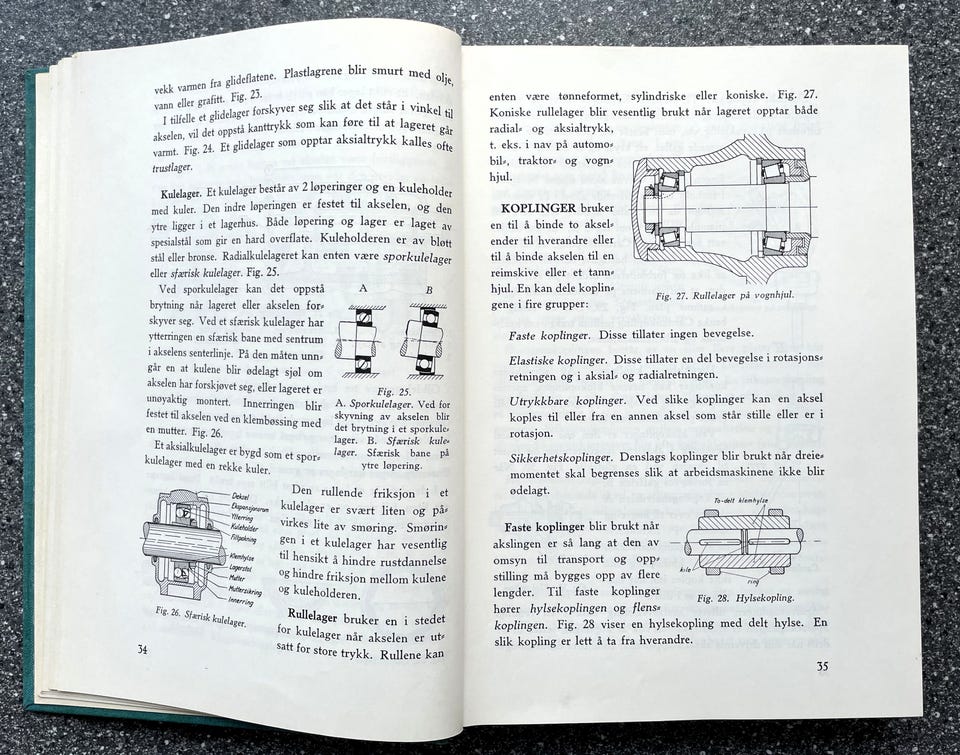 vekk varmen fra glideflatene. Plastlagrene blir smurt med olje,
vann eller grafitt. Fig. 23.
I tilfelle et glidelager forskyver seg slik at det står i vinkel til
akselen, vil det oppstå kanttrykk som kan føre til at lageret går
varmt. Fig. 24. Et glidelager som opptar aksialtrykk kalles ofte
trustlager.
Kulelager. Et kulelager består av 2 løperinger og en kuleholder
med kuler. Den indre løperingen er festet til akselen, og den
ytre ligger i et lagerhus. Både løpering og lager er laget av
spesialstål som gir en hard overflate. Kuleholderen er av bløtt
stål eller bronse. Radialkulelageret kan enten være sporkulelager
eller sfærisk kulelager. Fig. 25.
Ved sporkulelager kan det oppstå
brytning når lageret eller akselen for-
skyver seg. Ved et sfærisk kulelager har
ytterringen en sfærisk bane med sentrum
i akselens senterlinje. På den måten unn-
går en at kulene blir ødelagt sjøl om
akselen har forskjøvet seg, eller lageret er
unøyaktig montert. Innerringen blir
festet til akselen ved en klembøssing med
en mutter. Fig. 26.
Et aksialkulelager er bygd som et spor-
kulelager med en rekke kuler.
A B
Fig. 25.
A. Sporkulelager. Ved for
skyvning av akselen blir
det brytning i et sporkule-
lager. B. Sfærisk kule-
lager. Sfærisk bane på
ytre løpering.
Deksel
Ekspansjonsrom
Ytterring
Kuleholder
Filtpakning
Klemhylse
Lagerstol
Mutter
Muttersikring
Innerring
Fig. 26. Sfærisk kulelager.
Den rullende friksjon i et
kulelager er svært liten og på-
virkes lite av smøring. Smørin-
gen i et kulelager har vesentlig
til hensikt å hindre rustdannelse
og hindre friksjon mellom kulene
og kuleholderen.
Rullelager bruker en i stedet
for kulelager når akselen er ut-
satt for store trykk. Rullene kan
34
enten være tønneformet, sylindriske eller koniske. Fig. 27.
Koniske rullelager blir vesentlig brukt når lageret opptar både
radial- og aksialtrykk,
t. eks. i nav på automo-
bil-, traktor- og vogn-
hjul.
KOPLINGER bruker
en til å binde to aksel-
ender til hverandre eller
til å binde akselen til en
reimskive eller et tann-
hjul. En kan dele koplin-
gene i fire grupper:
Fig. 27. Rullelager på vognhjul.
Faste koplinger. Disse tillater ingen bevegelse.
Elastiske koplinger. Disse tillater en del bevegelse i rotasjons-
retningen og i aksial- og radialretningen.
Utrykkbare koplinger. Ved slike koplinger kan en aksel
koples til eller fra en annen aksel som står stille eller er i
rotasjon.
Sikkerhetskoplinger. Denslags koplinger blir brukt når dreie-
momentet skal begrenses slik at arbeidsmaskinene ikke blir
ødelagt.
Faste koplinger blir brukt når
akslingen er så lang at den av
omsyn til transport og opp-
stilling må bygges opp av flere
lengder. Til faste koplinger
hører hylsekoplingen og flens-
koplingen. Fig. 28 viser en hylsekopling med delt hylse. En
slik kopling er lett å ta fra hverandre.
To-delt klemhylse
kile
ring
Fig. 28. Hylsekopling.
35